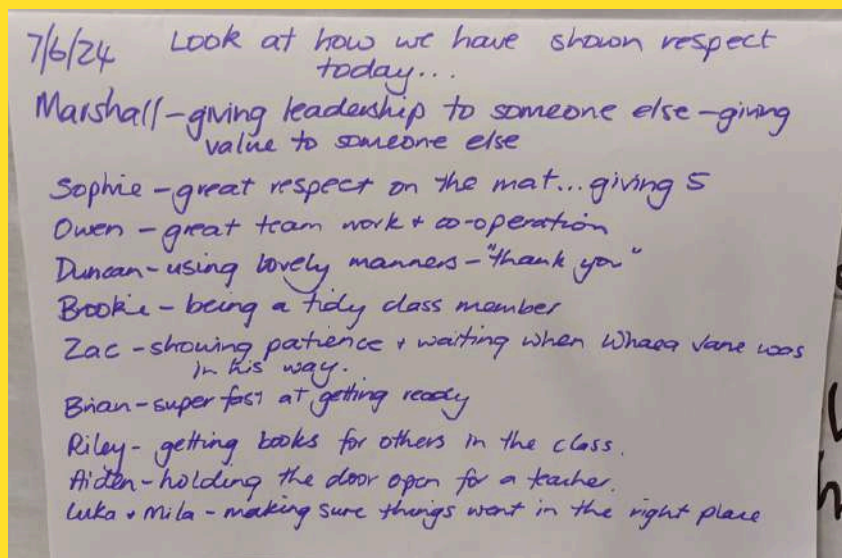 7/6/24 Look at how we have shown respect
today...
Marshall - giving leadership to someone else - giving
value to someone else
Sophie - great respect on the mat... giving 5
Owen - great team work + co-operation
Duncan - using lovely manners - "thank you"
Brookie - being a tidy class member
Zac - showing patience + waiting when Whaea Jane was
in his way.
Brian - super fast at getting ready
Riley - getting books for others in the class.
Aiden - holding the door open for a teacher.
Luka + Mila - making sure things went in the right place